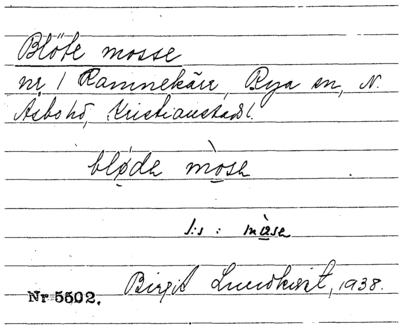 Blöte mosse
nr 1 Ramnekärr, Bya sn, N.
Åsbo hd, Kristianstads l.
blødə mòsə
s:s : màsə
Nr 5502. Birgit Lundkvist, 1938.